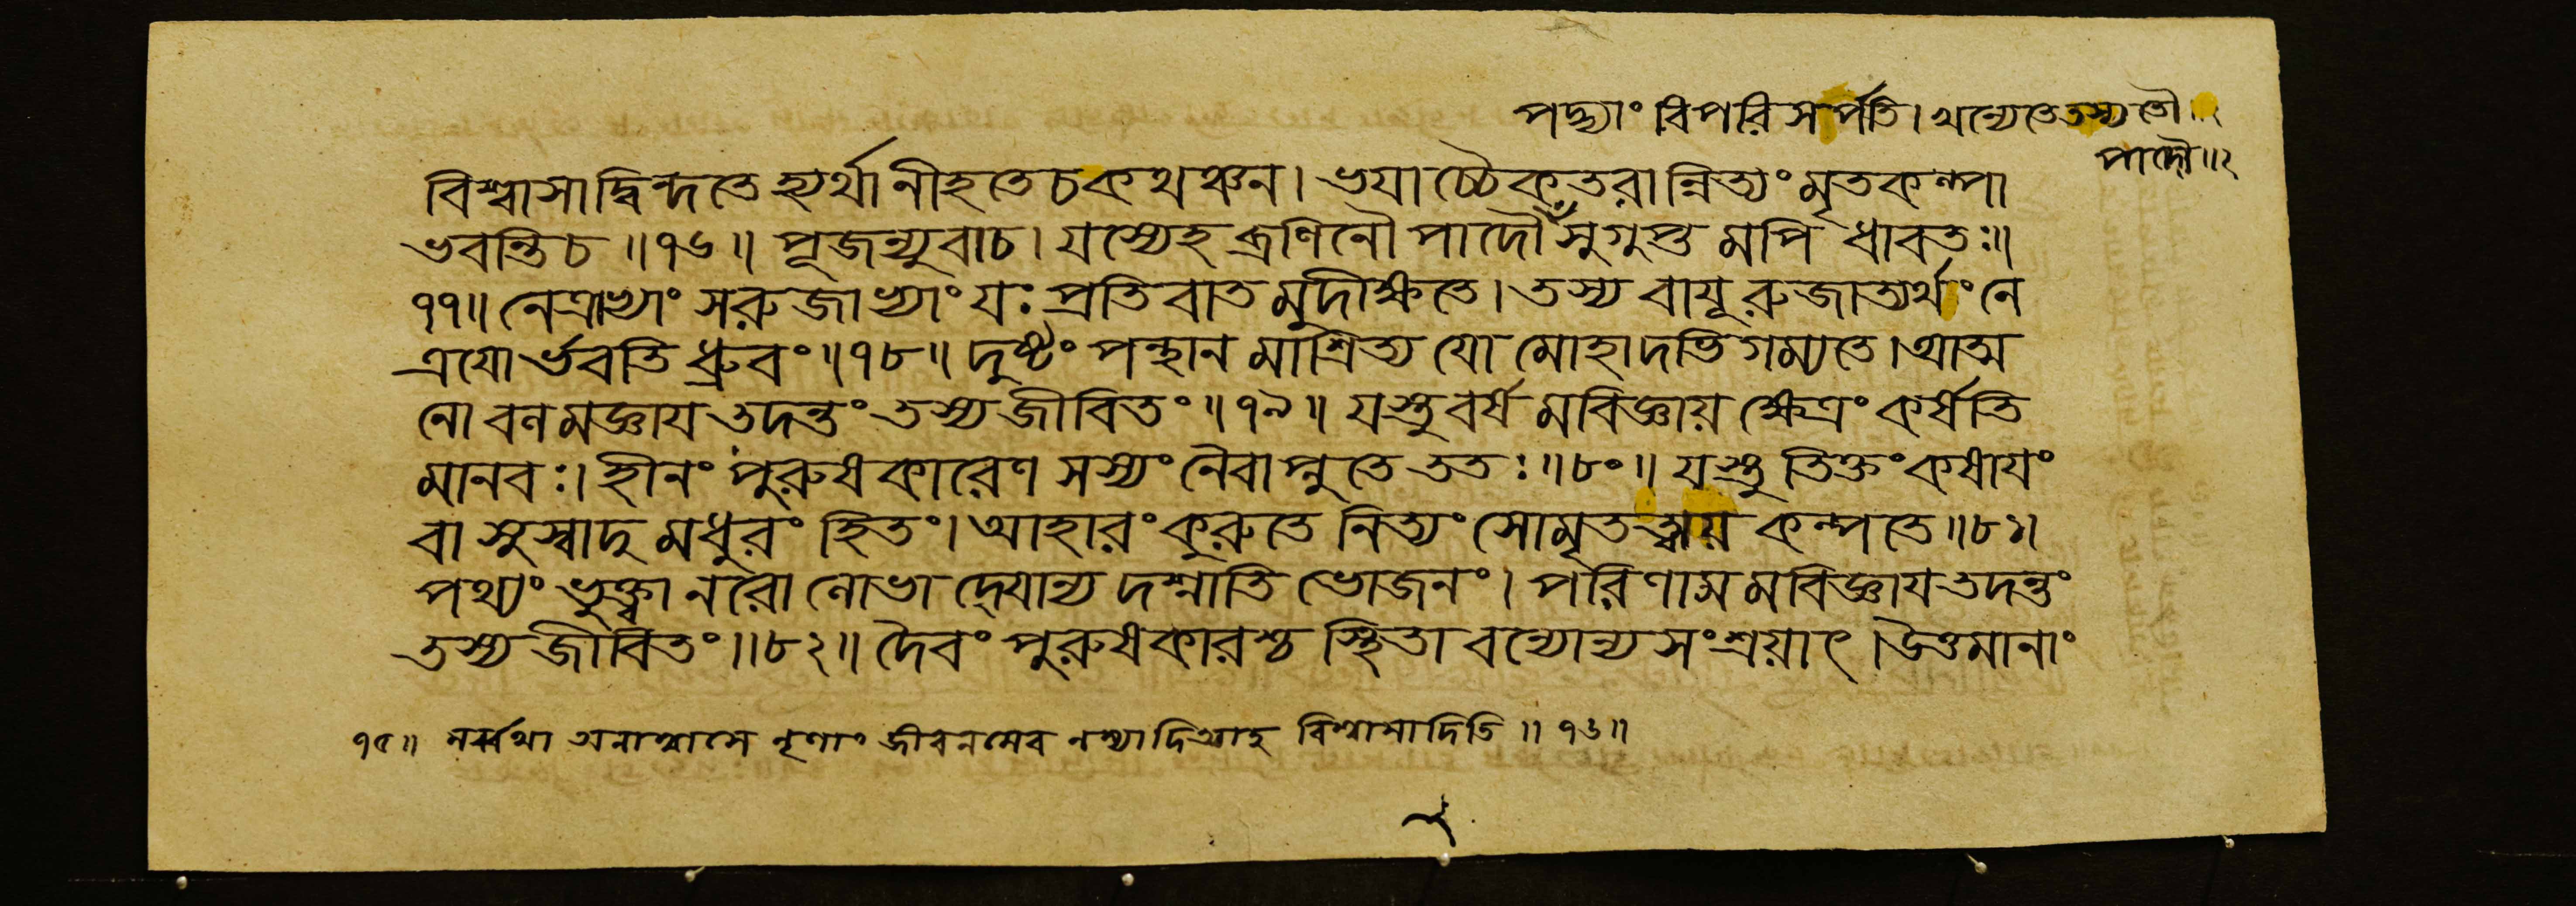 পদ্ভ্যাং বিপরিসর্পতি। খন্যেতে তস্য তৌ
পাদৌ॥২
বিশ্বাসাদ্বিন্দতে হ্যর্থানীহতে চ কথঞ্চন। ভযাচ্চৈকতরান্নিত্যং মৃতকল্পা
ভবন্তি চ॥৭৬॥ পূজন্যুবাচ। যস্যেহ ব্রণিনৌ পাদৌ সুগুপ্ত মপি ধাবতঃ॥
৭৭॥ নেত্রাভ্যাং সরুজাভ্যাং যঃ প্রতিবাত মুদীক্ষতে। তস্য বাযূরুজাত্যর্থং নে
ত্রযোর্ভবতি ধ্রুবং॥৭৮॥ দুষ্টং পন্থান মাশ্রিত্য যো মোহাদভিগম্যতে। আত্ম
নো বল মজ্ঞায তদন্তং তস্য জীবিতং॥৭৯॥ যস্তু বর্ষ মবিজ্ঞায় ক্ষেত্রং কর্ষতি
মানবঃ। হীনং পুরুষকারেণ সস্যং নৈবাপ্নুতে ততঃ॥৮০॥ যস্তু তিক্তং কষাযং
বা সুস্বাদু মধুরং হিতং। আহারং কুরুতে নিত্যং সোমৃতত্বায় কল্পতে॥৮১।
পথ্যং ভুক্ত্বা নরো লোভা দ্যোন্য দশ্নাতি ভোজনং। পরিণাম মবিজ্ঞায তদন্তং
তস্য জীবিতং॥৮২॥ দৈবং পুরুষকারশ্চ স্থিতা বন্যোন্য সংশ্রয়াৎ। উত্তমানাং
৭৫॥ সর্ব্বথা অনাশ্বাসে নৃণাং জীবনমেব নস্যাদিত্যাহ বিশ্বাসাদিতি॥৭৬॥